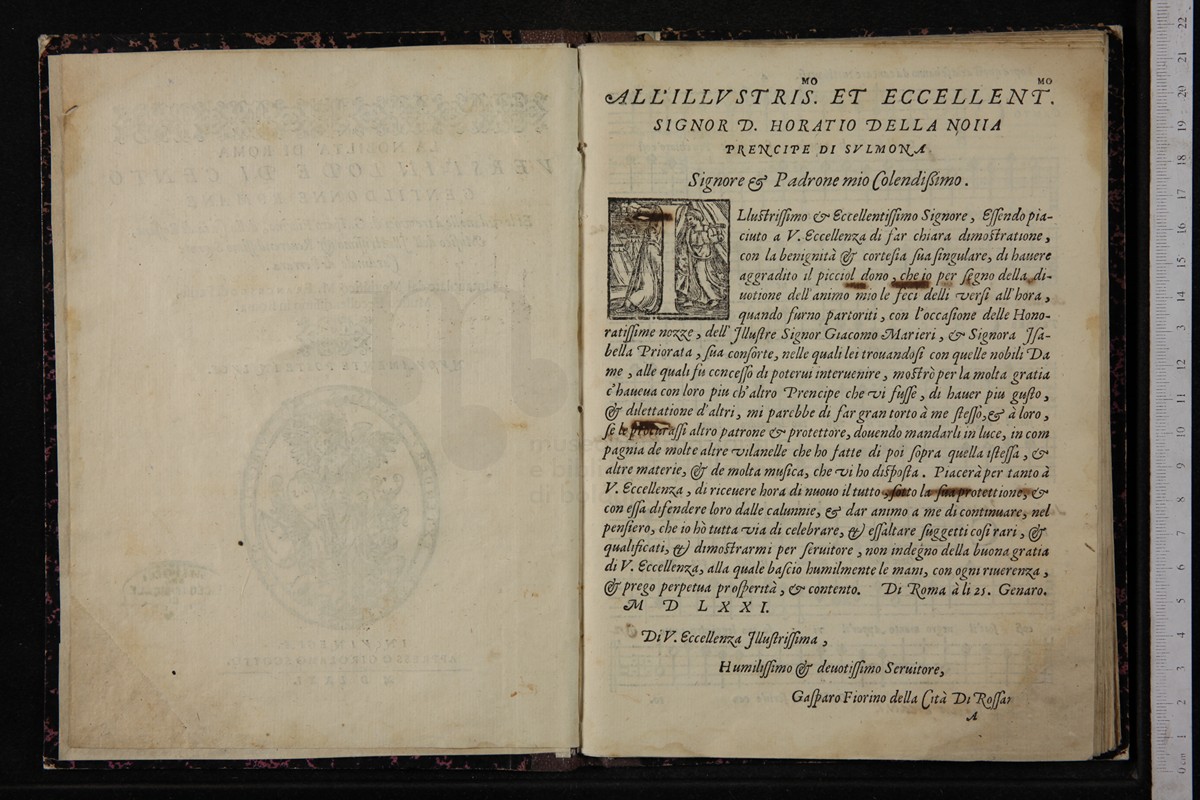 ALL'ILLVSTRIS.MO ET ECCELLENT.MO
SIGNOR D. HORATIO DELLA NOIIA
PRENCIPE DI SVLMONA.
Signore & Padrone mio Colendißimo.
ILlustrissimo & Eccellentissimo Signore, Essendo pia-
ciuto a V. Eccellenza di far chiara dimostratione,
con la benignità & cortesia sua singulare, di hauere
aggradito il picciol dono, che io per segno della di-
uotione dell'animo mio le feci delli versi all'hora,
quando furno partoriti, con l'occasione delle Hono-
ratissime nozze, dell'Illustre Signor Giacomo Marieri, & Signora Isa-
bella Priorata, sua consorte, nelle quali lei trouandosi con quelle nobili Da
me, alle quali fù concesso di poterui interuenire, mostrò per la molta gratia
c'haueua con loro piu ch'altro Prencipe che vi fusse, di hauer piu gusto,
& dilettatione d'altri, mi parebbe di far gran torto à me stesso, & à loro,
se le procurassi altro patrone & protettore, douendo mandarli in luce, in com
pagnia de molte altre vilanelle che ho fatte di poi sopra quella istessa, &
altre materie, & de molta musica, che vi ho disposta. Piacerà per tanto à
V. Eccellenza, di riceuere hora di nuouo il tutto, sotto la sua protettione, &
con essa difendere loro dalle calunnie, & dar animo a me di continuare, nel
pensiero, che io hò tutta via di celebrare, & essaltare suggetti cosi rari, &
qualificati, & dimostrarmi per seruitore, non indegno della buona gratia
di V. Eccellenza, alla quale bascio humilmente le mani, con ogni riuerenza,
& prego perpetua prosperità, & contento. Di Roma à li 25. Genaro.
M D LXXI.
Di V. Eccellenza Illustrissima,
Humilissimo & deuotissimo Seruitore,
Gasparo Fiorino della Città Di Rossan
A